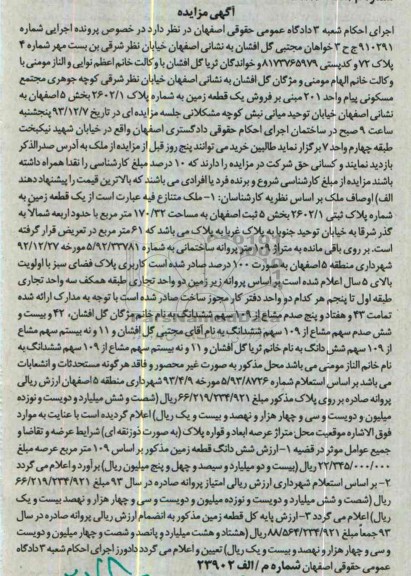 آگهی مزایده
اجرای احکام شعبه ۳ دادگاه عمومی حقوقی اصفهان در نظر دارد در خصوص پرونده اجرایی شماره
۹۱۰۲۹۱ ج ح ۳ خواهان مجتبی گل افشان به نشانی اصفهان خیابان نظر شرقی بن بست مهر شماره ۴
پلاک ۷۲ و کدپستی ۸۱۷۳۷۶۵۹۷۹ و خواندگان ثریا گل افشان با وکالت خانم اعظم نوایی و الناز مومنی با
وکالت خانم الهام مومنی و مژگان گل افشان به نشانی اصفهان خیابان نظر شرقی کوچه جوهری مجتمع
مسکونی پیام واحد ۲۰۱ مبنی بر فروش یک قطعه زمین به شماره پلاک ۲۶۰۲/۱ بخش ۵ اصفهان به
نشانی اصفهان خیابان توحید میانی نبش کوچه مشکلانی جلسه مزایده ای در تاریخ ۹۳/۱۲/۷ پنجشنبه
ساعت ۹ صبح در ساختمان اجرای احکام حقوقی دادگستری اصفهان واقع در خیابان شهید نیکبخت
طبقه چهارم واحد ۷ برگزار نماید طالبین خرید می توانند پنج روز قبل از مزایده از ملک به آدرس صدرالذکر
بازدید نمایند و کسانی حق شرکت در مزایده را دارند که ۱۰ درصد مبلغ کارشناسی را نقدا همراه داشته
باشند مزایده از مبلغ کارشناسی شروع و برنده فرد یا افرادی می باشند که بالاترین قیمت را پیشنهاد دهند
الف) اوصاف ملک بر اساس نظریه کارشناسان: ۱- ملک متنازع فیه عبارت است از یک قطعه زمین به
شماره پلاک ثبتی ۲۶۰۲/۱ بخش ۵ ثبت اصفهان به مساحت ۱۷۰/۳۲ متر مربع با حدود اربعه شمالا به
گذر شرقا به خیابان توحید جنوبا به پلاک غربا به پلاک می باشد که ۶۱ متر مربع در تعریض قرار گرفته
است. بر روی باقی مانده به متراژ ۱۰۹ متر پروانه ساختمانی به شماره ۵/۹۲/۳۳۷۸۱ مورخه ۹۲/۱۲/۲۷
شهرداری منطقه ۵ اصفهان به صورت ۱۰۰ درصد صادر شده است کاربری پلاک فضای سبز با اولویت
بالای ۵ سال اعلام شده است بر اساس پروانه زیر زمین دو واحد تجاری طبقه همکف سه واحد تجاری
طبقه اول تا پنجم هر کدام دو واحد دفتر کار مجوز ساخت صادر شده است با توجه به مدارک ارائه شده
تمامت ۴۳ و هفتاد و پنج صدم مشاع از ۱۰۹ سهم ششدانگ به نام خانم مژگان گل افشان، ۴۲ و بیست و
شش صدم سهم مشاع از ۱۰۹ سهم ششدانگ به نام آقای مجتبی گل افشان و ۱۱ و نه بیستم سهم مشاع
از ۱۰۹ سهم شش دانگ به نام خانم ثریا گل افشان و ۱۱ و نه بیستم سهم مشاع از ۱۰۹ سهم ششدانگ به
نام خانم الناز مومنی می باشد محل مذکور به صورت غیر محصور و فاقد هر گونه مستحدثات و انشعابات
می باشد بر اساس استعلام شماره ۵/۹۳/۸۷۲۶ مورخه ۹۳/۴/۹ شهرداری منطقه ۵ اصفهان ارزش ریالی
پروانه صادره بر روی پلاک مذکور مبلغ ۶۶/۲۱۹/۲۳۴/۹۲۱ ریال (شصت و شش میلیارد و دویست و نوزده
میلیون و دویست و سی و چهار هزار و نهصد و بیست و یک ریال) اعلام گردیده است با عنایت به موارد
فوق الاشاره موقعیت محل متراژ عرصه ابعاد و قواره پلاک (به صورت ذوزنقه ای) شرایط عرضه و تقاضا و
جمیع عوامل موثر در قضیه ۱- ارزش شش دانگ قطعه زمین مذکور بر اساس ۱۰۹ متر مربع عرصه مبلغ
۲۲/۳۴۵/۰۰۰/۰۰۰ ریال (بیست و دو میلیارد و سیصد و چهل و پنج میلیون ریال) برآورد و اعلام می گردد
۲- بر اساس استعلام شهرداری ارزش ریالی امتیاز پروانه صادره در سال ۹۳ مبلغ ۶۶/۲۱۹/۲۳۴/۹۲۱
ریال (شصت و شش میلیارد و دویست و نوزده میلیون و دویست و سی و چهار هزار و نهصد بیست و یک
ریال) اعلام می گردد ۳- ارزش پایه کل قطعه زمین مذکور به انضمام ارزش ریالی پروانه صادره در سال
۹۳ جمعاً مبلغ ۸۸/۵۶۴/۲۳۴/۹۲۱ ریال (هشتاد و هشت میلیارد و پانصد و شصت و چهار میلیون دویست
و سی و چهار هزار و نهصد و بیست و یک ریال) تعیین و اعلام می گردد دادورز اجرای احکام شعبه ۳ دادگاه
عمومی حقوقی اصفهان شماره م / الف ۲۳۹۰۲